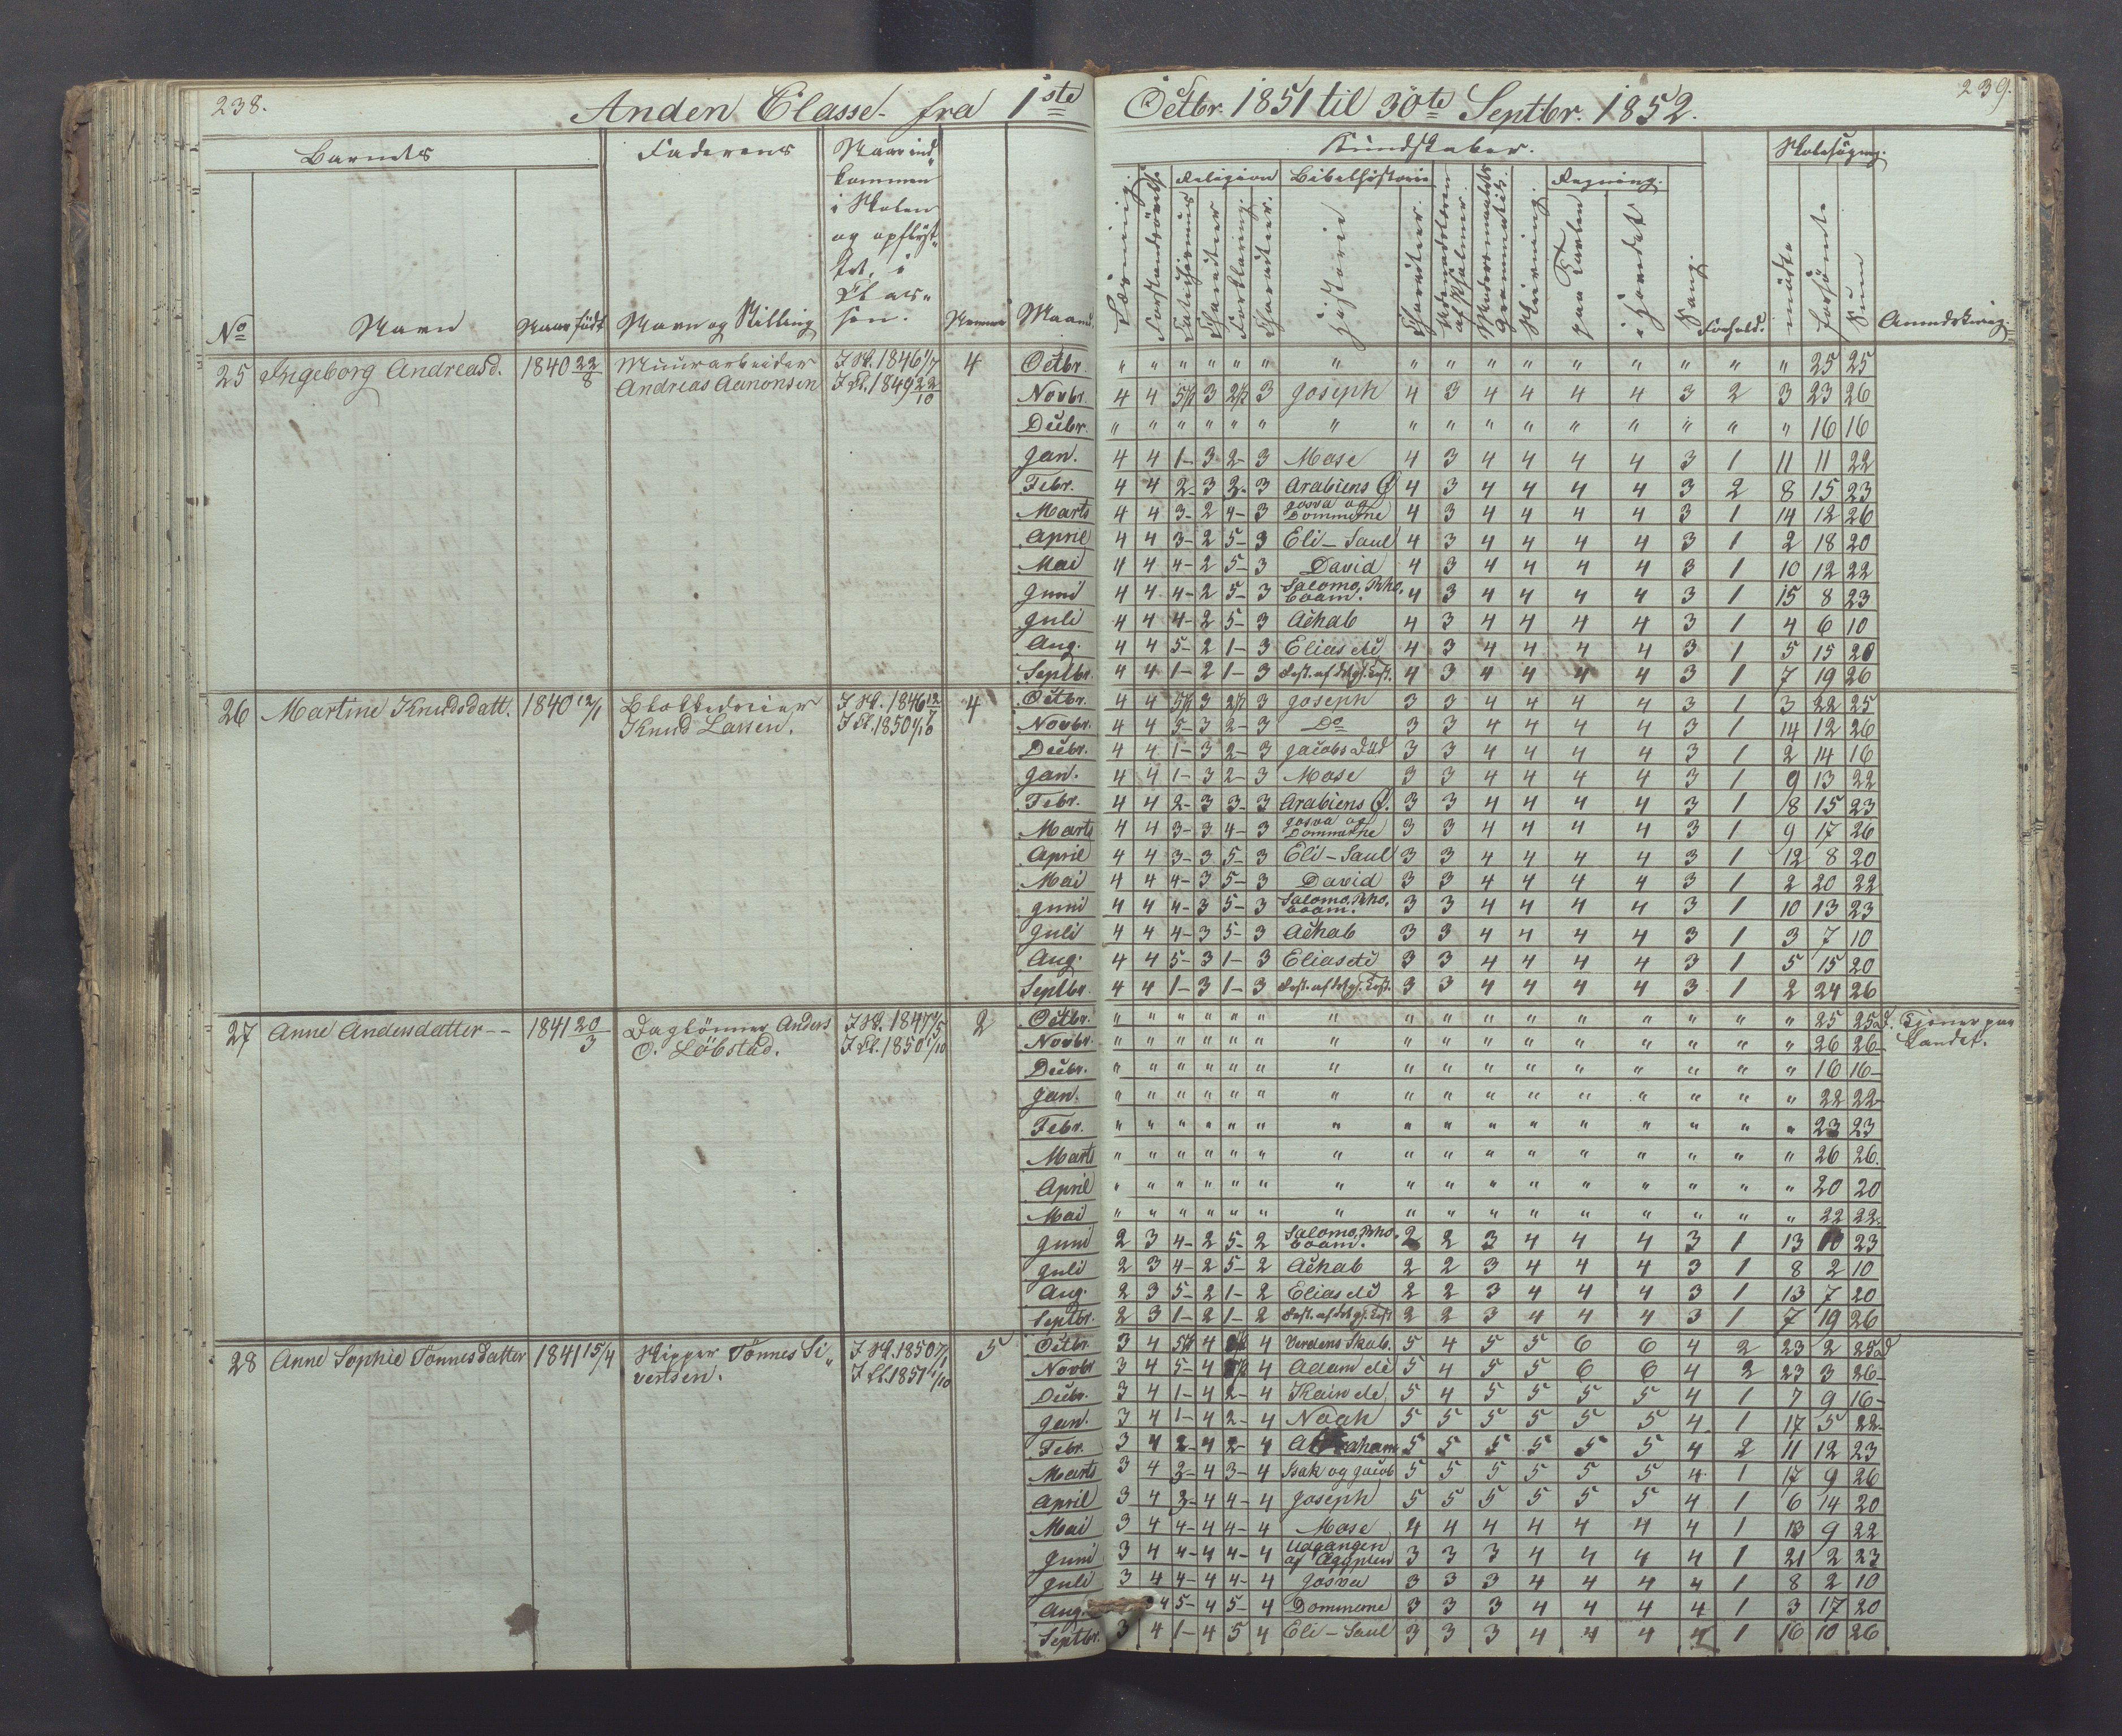 238.
Anden Classe fra 1ste
Octbr. 1851 til 30te Septbr. 1852.
239.
Barnets
Faderens
Naar ind
kommen
i Skolen
og opflyt
tet i
Clas-
sen.
No
Navn
Naar født
Navn og Stilling
Maaned
Kundskaber.
Skolesøgning.
Religion
Bibelhistorie
Regning.
Forklaring.
Historie
Sang.
Forhold.
mødte
forsømte
Sum
Anmærkning.
25 Ingeborg Andreasd. 1840 22/8 Muurarbeider I Sk. 1846 1/7 4
Andreas Aanonsen I Cl. 1849 22/10
Octbr. " " " " " " " " " " " " " " " " 25 25
Novbr. 4 4 3 3 Joseph 4 3 4 4 4 4 3 2 3 23 26
Decbr. " " " " " " " " " " " " " " " " 16 16
Jan. 4 4 1- 3 2- 3 Mose 4 3 4 4 4 4 3 1 11 11 22
Febr. 4 4 2- 3 2- 3 Arabiens Ø 4 3 4 4 4 4 3 2 8 15 23
Marts 4 4 3- 2 4- 3 Josva og Dommerne 4 3 4 4 4 4 3 1 14 12 26
April 4 4 3- 2 5- 3 Eli - Saul 4 3 4 4 4 4 3 1 2 18 20
Mai 4 4 4- 2 5- 3 David 4 3 4 4 4 4 3 1 10 12 22
Juni 4 4 4- 2 5- 3 Salomo, Rho,boam. 4 3 4 4 4 4 3 1 15 8 23
Juli 4 4 4- 2 5- 3 Achab 4 3 4 4 4 4 3 1 4 6 10
Aug. 4 4 5- 2 1- 3 Elias etc 4 3 4 4 4 4 3 1 5 15 20
Septbr. 4 4 1- 2 1- 3 4 3 4 4 4 4 3 1 7 19 26
26 Martine Knudsdatt. 1840 12/1 Blokkedreier I Sk. 1846 12/7 4
Knud Lassen. I Cl. 1850 1/10
Octbr. 4 4 3 3 Joseph 3 3 4 4 4 4 3 1 3 22 25
Novbr. 4 4 5- 3 2- 3 Do 3 3 4 4 4 4 3 1 14 12 26
Decbr. 4 4 1- 3 2- 3 Jacobs Død 3 3 4 4 4 4 3 1 2 14 16
Jan. 4 4 1- 3 2- 3 Mose 3 3 4 4 4 4 3 1 9 13 22
Febr. 4 4 2- 3 3- 3 Arabiens Ø. 3 3 4 4 4 4 3 1 8 15 23
Marts 4 4 3- 3 4- 3 Josva og Dommerne 3 3 4 4 4 4 3 1 9 17 26
April 4 4 3- 3 5- 3 Eli - Saul 3 3 4 4 4 4 3 1 12 8 20
Mai 4 4 4- 3 5- 3 David 3 3 4 4 4 4 3 1 2 20 22
Juni 4 4 4- 3 5- 3 Salomo, Rho,boam. 3 3 4 4 4 4 3 1 10 13 23
Juli 4 4 4- 3 5- 3 Achab 3 3 4 4 4 4 3 1 3 7 10
Aug. 4 4 5- 3 1- 3 Elias etc 3 3 4 4 4 4 3 1 5 15 20
Septbr. 4 4 1- 3 1- 3 3 3 4 4 4 4 3 1 2 24 26
27 Anne Andersdatter -- 1841 20/3 Daglønner Anders I Sk. 1847 1/5 2
O. Løbstad. I Cl. 1850 1/10
Octbr. " " " " " " " " " " " " " " " " 25 25 d. Tjener paa
Novbr. " " " " " " " " " " " " " " " " 26 26- Landet.
Decbr. " " " " " " " " " " " " " " " " 16 16-
Jan. " " " " " " " " " " " " " " " " 22 22-
Febr. " " " " " " " " " " " " " " " " 23 23
Marts " " " " " " " " " " " " " " " " 26 26.
April " " " " " " " " " " " " " " " " 20 20
Mai " " " " " " " " " " " " " " " " 22 22.
Juni 2 3 4- 2 5- 2 Salomo, Rho,boam. 2 2 3 4 4 4 3 1 13 10 23
Juli 2 3 4- 2 5- 2 Achab 2 2 3 4 4 4 3 1 8 2 10
Aug. 2 3 5- 2 1- 2 Elias etc 2 2 3 4 4 4 3 1 13 7 20
Septbr. 2 3 1- 2 1- 2 2 2 3 4 4 4 3 1 7 19 26
28 Anne Sophie Tønnesdatter 1841 15/4 Skipper Tønnes Si- I Sk. 1850 7/1 5
vertsen. I Cl. 1851 1/10
Octbr. 3 4 4 4 Verdens Skab. 5 4 5 5 6 6 4 2 23 2 25 d
Novbr. 3 4 5- 4 4 Adam etc 5 4 5 5 6 6 4 2 23 3 26-
Decbr. 3 4 1- 4 2- 4 Kain etc 5 4 5 5 5 5 4 1 7 9 16-
Jan. 3 4 1- 4 2- 4 Noah 5 5 5 5 5 5 4 1 17 5 22-
Febr. 3 4 2- 4 2- 4 Abraham 5 5 5 5 5 5 4 2 11 12 23
Marts 3 4 3- 4 3- 4 Isak og Jacob 5 5 5 5 5 5 4 1 17 9 26
April 3 4 3- 4 4- 4 Joseph 5 5 5 5 5 5 4 1 6 14 20
Mai 3 4 4- 4 4- 4 Mose 4 4 4 4 4 4 4 1 13 9 22
Juni 3 4 4- 4 4- 4 Udgangen af Ægypten 3 3 3 4 4 4 4 1 21 2 23
Juli 3 4 4- 4 4- 4 Josva 3 3 3 4 4 4 4 1 8 2 10
Aug. 3 4 5- 4 5- 4 Dommerne 3 3 3 4 4 4 4 1 3 17 20
Septbr. 3 4 1- 4 5 4 Eli - Saul 3 3 3 4 4 4 4 1 16 10 26